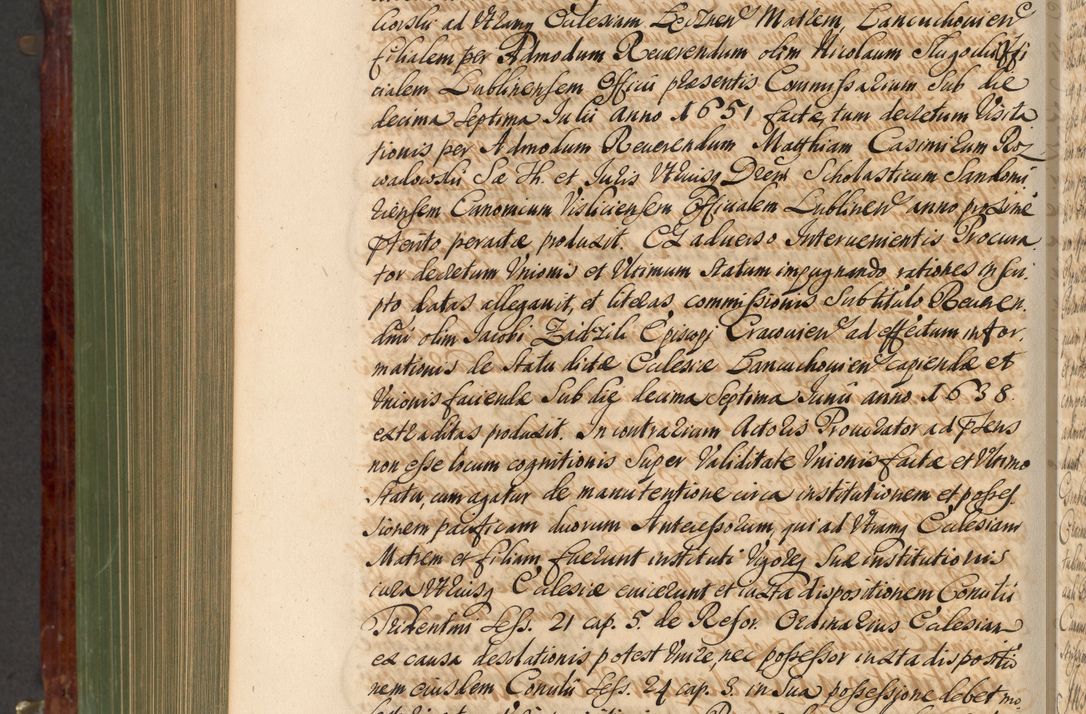 ad Vtramq Ecclesiam Leczhen Matrem, Lancuchouien
filialem per Admodum Reuerendum olim Nicolaum Offi
cialem Lublinensem Officii præsentis Commissarium Sub die
decima Septima Julii anno 1651 factæ, tum decretum Visita
tionis per Admodum Reuerendum Matthiam Casimirum Roz
wadowski Sæ Th. et Juris Vtriusq Drem Scholasticum Sandomi
riensem Canonicum Visliciensem Officialem Lublinen anno proxime
pterito peractæ produxit. Ex aduerso Interuenientis Procura
tor decretum Vnionis et Vltimum Statum impugnando rationes in scri
pto datas allegauit, et literas commissionis Sub titulo Reueren
dmi olim Jacobi Zadzik Episcopi Cracouien ad effectum infor
mationis de Statu dictæ Ecclesiæ Lancuchouien capiendæ et
Vnionis faciendæ Sub die decima Septima Junii anno 1638.
extraditas produxit. In contrarium Actoris Procurator ad Pñens
non esse locum cognitionis Super Validitate Vnionis factæ et Vltimo
Statu, cum agatur de manutentione circa institutionem et posses
sionem pacificam duorum Antecessorum, qui ad Vtramq Ecclesiam
Matrem et filiam fuerunt instituti Vigore Suæ institutionis
cura Vtriusq Ecclesiæ exicerunt et iuxta dispositionem Concilii
Tridentini Sess. 21 cap. 5. de Refor. Ordinarius Ecclesiam
ex causa desolationis potest Vnire, nec possessor iuxta dispositio
nem eiusdem Concilii Sess. 24 cap. 3. in Sua possessione debet mo